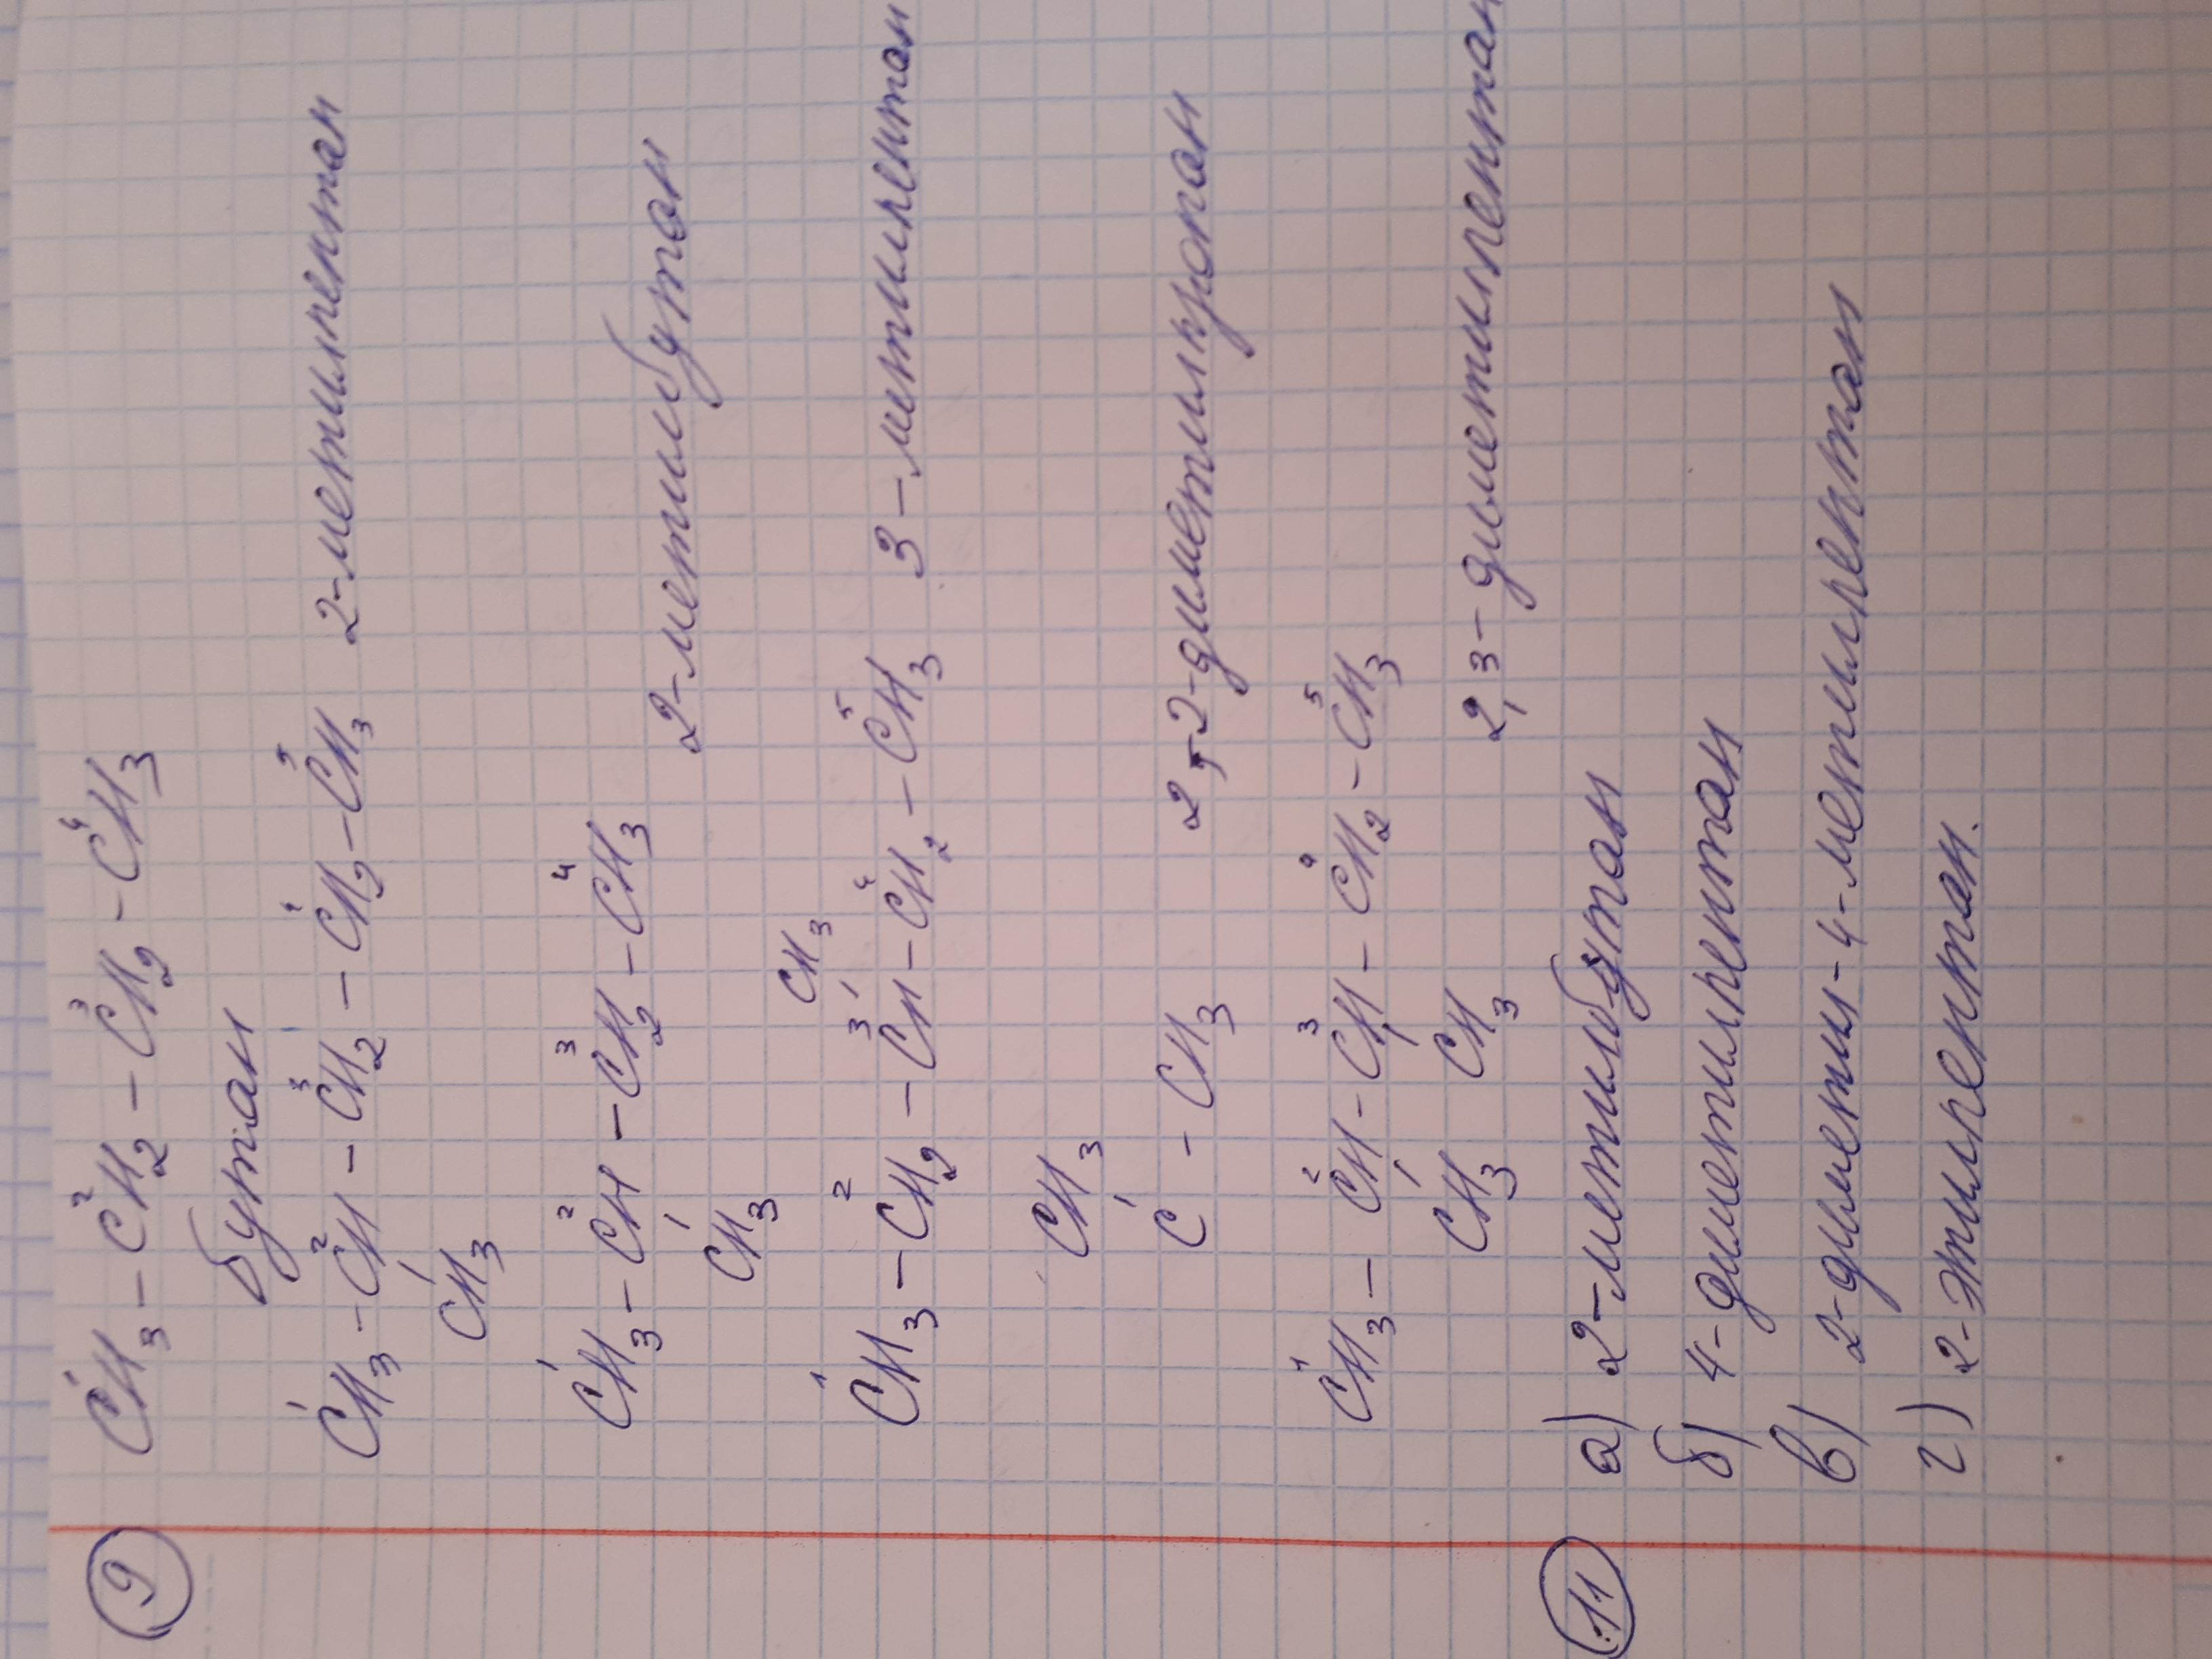 9
1 2 3 4
CH3 - CH2 - CH2 - CH3
бутан
1 2 3 4 5
CH3 - CH - CH2 - CH2 - CH3 2-метилпентан
CH3
1 2 3 4
CH3 - CH - CH2 - CH3
CH3 2-метилбутан
CH3
1 2 3 4 5
CH3 - CH2 - CH - CH2 - CH3 3-метилпентан
CH3
C - CH3 2,-2-диметилпропан
1 2 3 4 5
CH3 - CH - CH - CH2 - CH3
CH3 CH3 2,3-диметилпентан
11 а) 2-метилбутан
б) 4-диметилпентан
в) 2-диметил-4-метилпентан
г) 2-этилпентан.